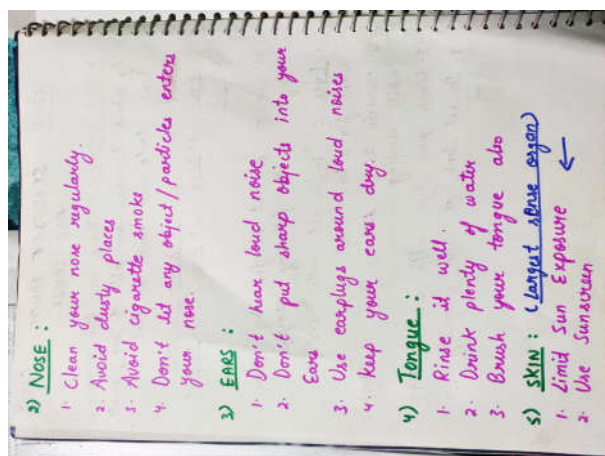 2) NOSE :
1. Clean your nose regularly.
2. Avoid dusty places
3. Avoid cigarette smoke
4. Don't let any object/particles enters
your nose.
3) EARS :
1. Don't hear loud noise
2. Don't put sharp objects into your
Ears
3. Use earplugs around loud noises
4. Keep your ears dry.
4) Tongue :
1. Rinse it well.
2. Drink plenty of water
3. Brush your tongue also
5) SKIN : (largest sense organ)
1. Limid Sun Exposure ←
2. Use Sunscreen